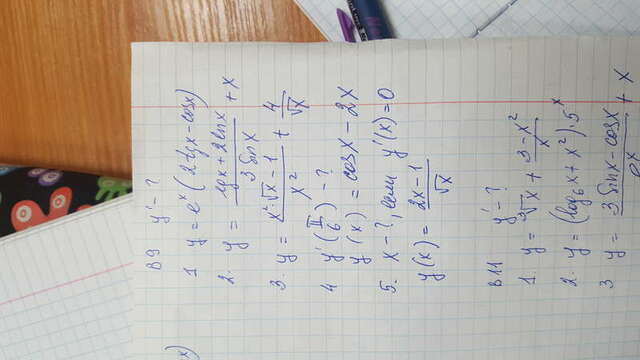 В 9 y' - ?
1 y = e^x (2 tg x - cos x)
2. y = (lg x + 2 ln x) / (3 sin x) + x
3. y = (x² · √x - 1) / x² + 4 / √x
4 y'(π/6) - ?
y(x) = cos x - 2x
5. x - ?, если y'(x) = 0
y(x) = (2x - 1) / √x
В 11 y' - ?
1. y = √x + (3 - x²) / x
2. y = (log₆ x + x²) 5^x
3 y = (3 sin x - cos x) / ex + x
x)